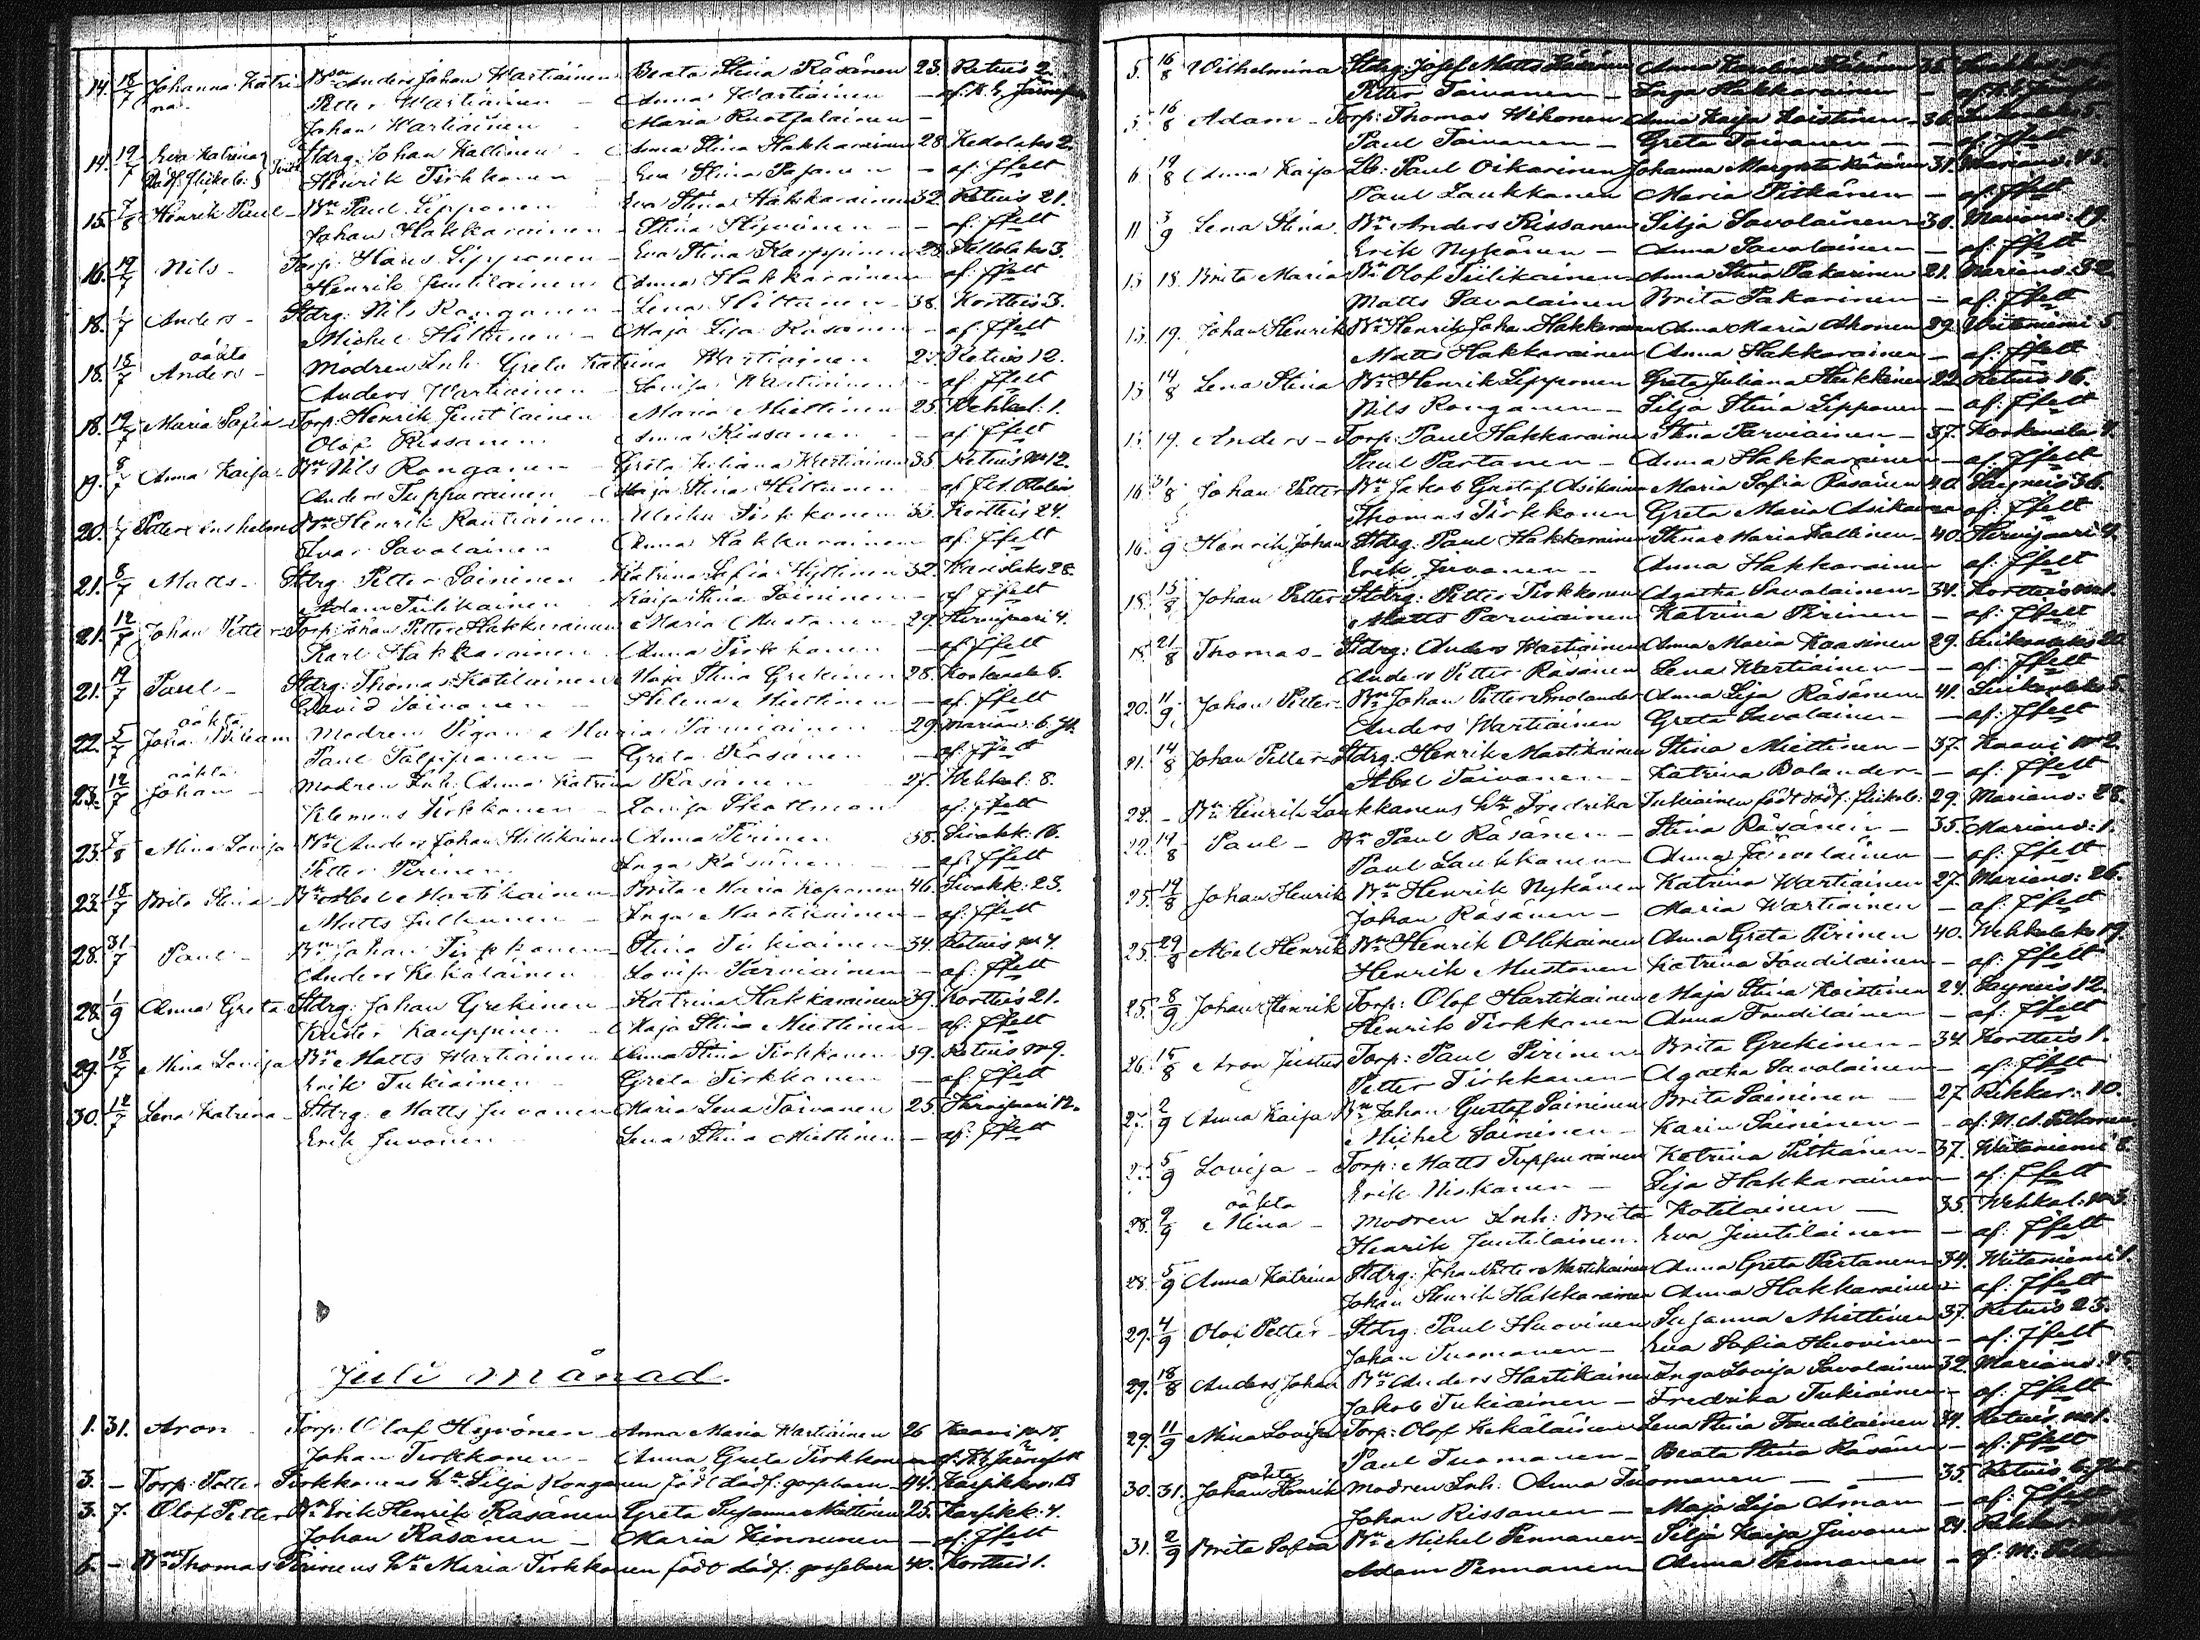 14. 18/7 Johanna Katri- Bsn Anders Johan Wartiainen Beata Stina Räsänen 23. Retuis 2.
na. Petter Wartiainen — Anna Wartiainen — af: K. E.
Johan Wartiainen Maria Ruotsalainen —
14. 19/7 Eva Katrina Stdrg: Johan Kallinen Anna Stina Hakkarainen 28 2.
Dödf. flickeb: Henrik Tirkkonen Eva Stina — af: Ffelt
15. 7/8 Henrik Paul — Bn Paul Lipponen — Eva Stina Hakkarainen 32. Retuis 21.
Johan Hakkarainen — Stina Hyvönen — af: Ffelt
16. 19/7 Nils — Torp: Hans Lipponen — Eva Stina Karppinen 28. 3.
Henrik Juntilainen Anna Hakkarainen af: Ffelt
18. 1/7 Anders — Stdrg: Nils Ronganen — Lena Hiltunen — 38. Kortteis 3.
Michel Hiltunen — Maja Lisa Räsänen — af: Ffelt
18. 18/7 oäkta Anders — Modren Inh: Greta Katrina Wartiainen 27. Retuis 12.
Anders Wartiainen — Lovisa Wartiainen — af: Ffelt
18. 19/7 Maria Sofia — Torp: Henrik Juntilainen Maria Miettinen 25. Wehkal: 1.
Olof Rissanen Anna Rissanen — af: Ffelt
19. 8/7 Anna Kaisa — Bn Nils Ronganen — Greta Juliana Wartiainen 35. Retuis No 12.
Anders Tuppurainen — Maja Stina Hiltunen af
20. 1/7 Petter Bn Henrik Rautiainen Ulrika Tirkkonen 33. Kortteis 24.
Ivar Savolainen Anna Hakkarainen — af: Ffelt
21. 8/7 Matts — Stdrg: Petter Soininen Katrina Sofia Hyttinen 32. 28.
Adam Tiilikainen Kaisa Stina Soininen — af: Ffelt
21. 12/7 Johan Petter — Torp: Johan Petter Hakkarainen Maria Mustonen 29. Hirvisaari 4.
Karl Hakkarainen Anna Tirkkonen — af: Ffelt
21. 19/7 Paul — Stdrg: Thomas Kotilainen Maja Stina Grekinen 28. 6.
David Toivanen — Helena Miettinen — af: Ffelt
22. 5/7 oäkta Johan Modren Pigan Maria Parviainen 29. Marianv: 6.
Paul — Greta Räsänen — af: Ffelt
23. 12/7 oäkta Johan — Modren Inh: Anna Katrina Räsänen 27. Wehkal: 8.
Klemens Tirkkonen — Lovisa — af: Ffelt
23. 7/8 Mina Lovisa Bn Anders Johan Anna Pirinen 38. Sivakk: 16.
Petter Pirinen Inga Räsänen — af: Ffelt
23. 18/7 Brita Stina — Bn Abel Martikainen — Brita Maria Koponen 46. Sivakk: 23.
Matts Julkunen — Inga Martikainen — af: Ffelt
28. 31/7 Paul — Bn Johan Tirkkonen Stina Tukiainen 34. Retuis No 4.
Anders Kekäläinen — Lovisa Parviainen — af: Ffelt
28. 1/9 Anna Greta Stdrg: Johan Grekinen — Katrina Hakkarainen 39. Kortteis 21.
Krister Kauppinen — Maja Stina Miettinen — af: Ffelt
29. 18/7 Mina Lovisa Bn Matts Wartiainen — Anna Stina Tirkkonen 39. Retuis No 9.
Erik Tukiainen Greta Tirkkonen — af: Ffelt
30. 12/7 Lena Katrina — Stdrg: Matts Juvonen Maria Lena Toivanen 25. Hirvisaari 12.
Erik Juvonen Lena Stina Miettinen — af: Ffelt
Juli månad.
1. 31. Aron Torp: Olof Hyvönen — Anna Maria Wartiainen 26 Kaavi No
Johan Tirkkonen — Anna Greta Tirkkonen
3. — Torp: Petter Tirkkonens hu Silja Ronganen född dödf: gossebarn — 44. Karsikkov: 13
3. 7. Olof Petter Bn Erik Henrik Räsänen Greta Susanna Miettinen 25. Karsikk: 4.
Johan Räsänen — Maria Kinnunen — af: Ffelt
5. — Bn Thomas Pirinens hu Maria Tirkkonen född dödf: gossebarn 40. Kortteis 1.
5. 16/8 Wilhelmina Stdrg: Josef Matts Räsänen Anna 35.
Petter Toivanen — Inga Hakkarainen —
5. 16/8 Adam — Torp: Thomas Wihonen Anna Kaisa Koistinen — 36. 5.
Paul Toivanen — Greta Toivanen — — af: Ffelt
6. 19/8 Anna Kaisa Lb: Paul Oikarinen Johanna Margreta Räsänen 31. Marianv: 45.
Paul Laukkanen Maria Pitkänen — af: Ffelt
11 3/9 Lena Stina Bn Anders Rissanen Silja Savolainen — 30. Marianv: 19.
Erik Nykänen — Anna Savolainen — af: Ffelt
13 18. Brita Maria Bn Olof Tiilikainen Anna Stina Pakarinen 21. Marianv: 32.
Matts Savolainen Brita Pakarinen — af: Ffelt
13. 19. Johan Henrik Bn Henrik Johan Hakkarainen Anna Maria Ahonen 29. Wiitaniemi 5.
Matts Hakkarainen Anna Hakkarainen — af: Ffelt
13 14/8 Lena Stina Bn Henrik Lipponen Greta Juliana Heikkinen 22. Retuis 16.
Nils Ronganen — Silja Stina Lipponen — af: Ffelt
13. 19. Anders — Torp: Paul Hakkarainen Stina Parviainen — 37. 4.
Paul Partanen — Anna Hakkarainen — af: Ffelt
16 31/8 Johan Petter Bn Jakob Gustaf Asikainen Maria Sofia Räsänen 40. Sayneis 36.
Thomas Tirkkonen Greta Maria Asikainen af: Ffelt
16. 5/9 Henrik Johan Stdrg: Paul Hakkarainen Stina Maria Kallinen — 40. Hirvisaari 4.
Erik Juvonen — Anna Hakkarainen af: Ffelt
18. 15/8 Johan Petter Stdrg: Petter Tirkkonen Agatha Savolainen — 34. Kortteis No 1.
Matts Parviainen Katrina Pirinen — af: Ffelt
18. 21/8 Thomas — Stdrg: Anders Wartiainen Anna Maria Kaasinen 29. 20
Anders Petter Räsänen Lena Wartiainen — af: Ffelt
20. 11/9 Johan Petter — Bn Johan Petter Smolander Anna Lisa Räsänen 41. 5.
Anders Wartiainen Greta Savolainen — af: Ffelt
21. 14/8 Johan Petter — Stdrg: Henrik Martikainen Stina Miettinen — 37. Kaavi No 2.
Abel Toivanen — Katrina Bolander — af: Ffelt
22. — Bn Henrik Laukkanens hu Fredrika Tukiainen född dödf: flickeb: 29. Marianv: 28.
22. 14/8 Paul — Bn Paul Räsänen — Stina Räsänen — 35. Marianv: 1.
Paul Laukkanen Anna — af: Ffelt
25. 19/8 Johan Henrik Bn Henrik Nykänen Katrina Wartiainen 27. Marianv: 26.
Johan Räsänen — Maria Wartiainen — af: Ffelt
25. 29/8 Abel Henrik Bn Henrik Ollikainen Anna Greta Pirinen 40. Wehkalaks 19.
Henrik Mustonen Katrina Taudilainen — af: Ffelt
25. 8/9 Johan Henrik Torp: Olof Hartikainen Maja Stina Koistinen 24. Sayneis 12.
Henrik Tirkkonen Anna Taudilainen — af: Ffelt
26. 15/8 Aron Justus Torp: Paul Pirinen Brita Grekinen — 34. Kortteis 1.
Petter Tirkkonen — Agatha Savolainen — af: Ffelt
2/9 Anna Kaisa Bn Johan Gustaf Soininen Brita Soininen — 27. Rikkav: 10.
Michel Soininen — Karin Soininen — af: M. A. Pelkonen
5/9 Lovisa — Torp: Matts Tuppurainen Katrina Pitkänen — 37. Wiitaniemi 8.
Erik Niskanen — Lisa Hakkarainen — af: Ffelt
28. 9/9 oäkta Mina — Modren Inh: Brita Kotilainen — 35. Wehkal: No 3.
Henrik Juntilainen Eva Juntilainen — af: Ffelt
28. 5/9 Anna Katrina Stdrg: Johan Petter Martikainen Anna Greta Partanen 34. Wiitaniemi 1.
Johan Henrik Hakkarainen Anna Hakkarainen — af: Ffelt
29. 4/9 Olof Petter — Stdrg: Paul Huovinen Susanna Miettinen 37. Retuis 23.
Johan Tuomanen — Eva Sofia Huovinen — af: Ffelt
29. 18/8 Anders Johan Bn Anders Hartikainen Inga Lovisa Savolainen 32. Marianv.
Jakob Tukiainen — Fredrika Tukiainen — af: Ffelt
29. 11/9 Mina Lovisa Torp: Olof Kekäläinen Lena Stina Taudilainen 34. Retuis No 1.
Paul Tuomanen — Beata Stina Räsänen — af: Ffelt
30. 31. oäkta Johan Henrik Modren Inh: Anna Tuomanen — — 35. Retuis 6.
Johan Rissanen — Maja Lisa Åman — af: Ffelt
31. 2/9 Brita Sofia Bn Michel Pennanen — Silja Kaisa Juvonen 24.
Adam Pennanen Anna Pennanen — af: M.